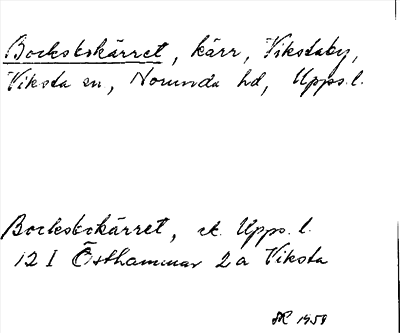 Bocksbokärret, kärr, Vikstaby,
Viksta sn, Norunda hd, Upps. l.
Bocksbokärret, st. Upps. l.
12 I Östhammar 2a Viksta
1958